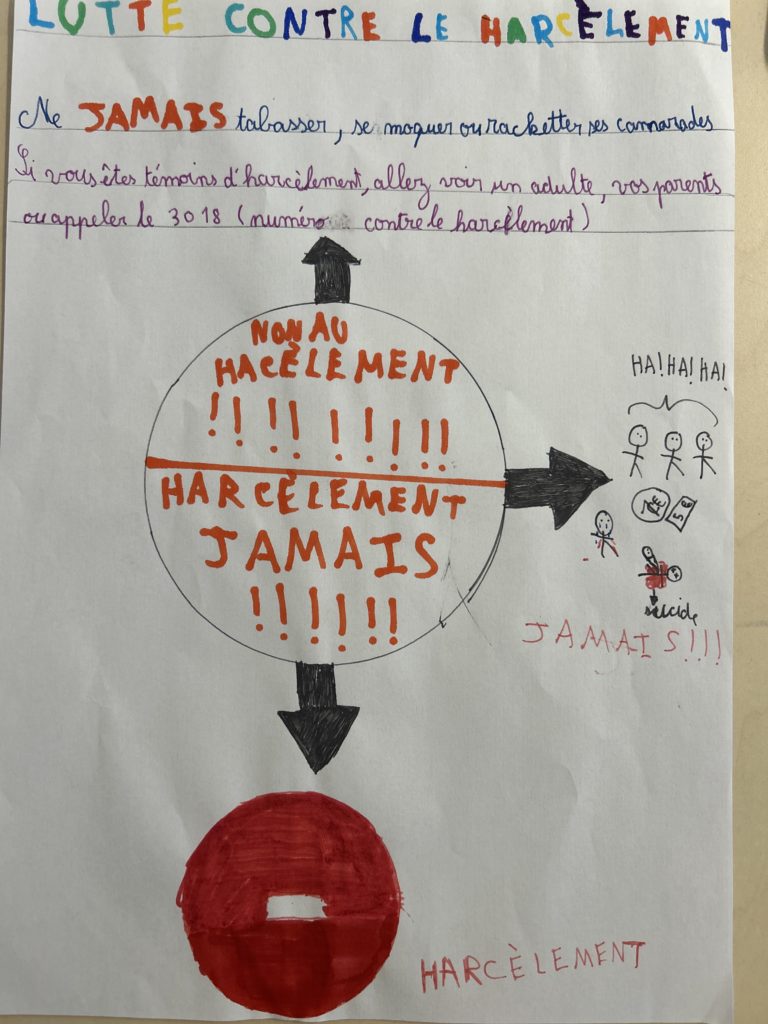 LUTTE CONTRE LE HARCÈLEMENT
Ne JAMAIS tabasser, se moquer ou racketter ses camarades
Si vous êtes témoins d'harcèlement, allez voir un adulte, vos parents
ou appeler le 3018 (numéro contre le harcèlement)
NON AU
HACÈLEMENT
!! !! ! ! ! !!
HARCÈLEMENT
JAMAIS
!!!!!!
HA! HA! HA!
5€
suicide
JAMAIS!!!
HARCÈLEMENT